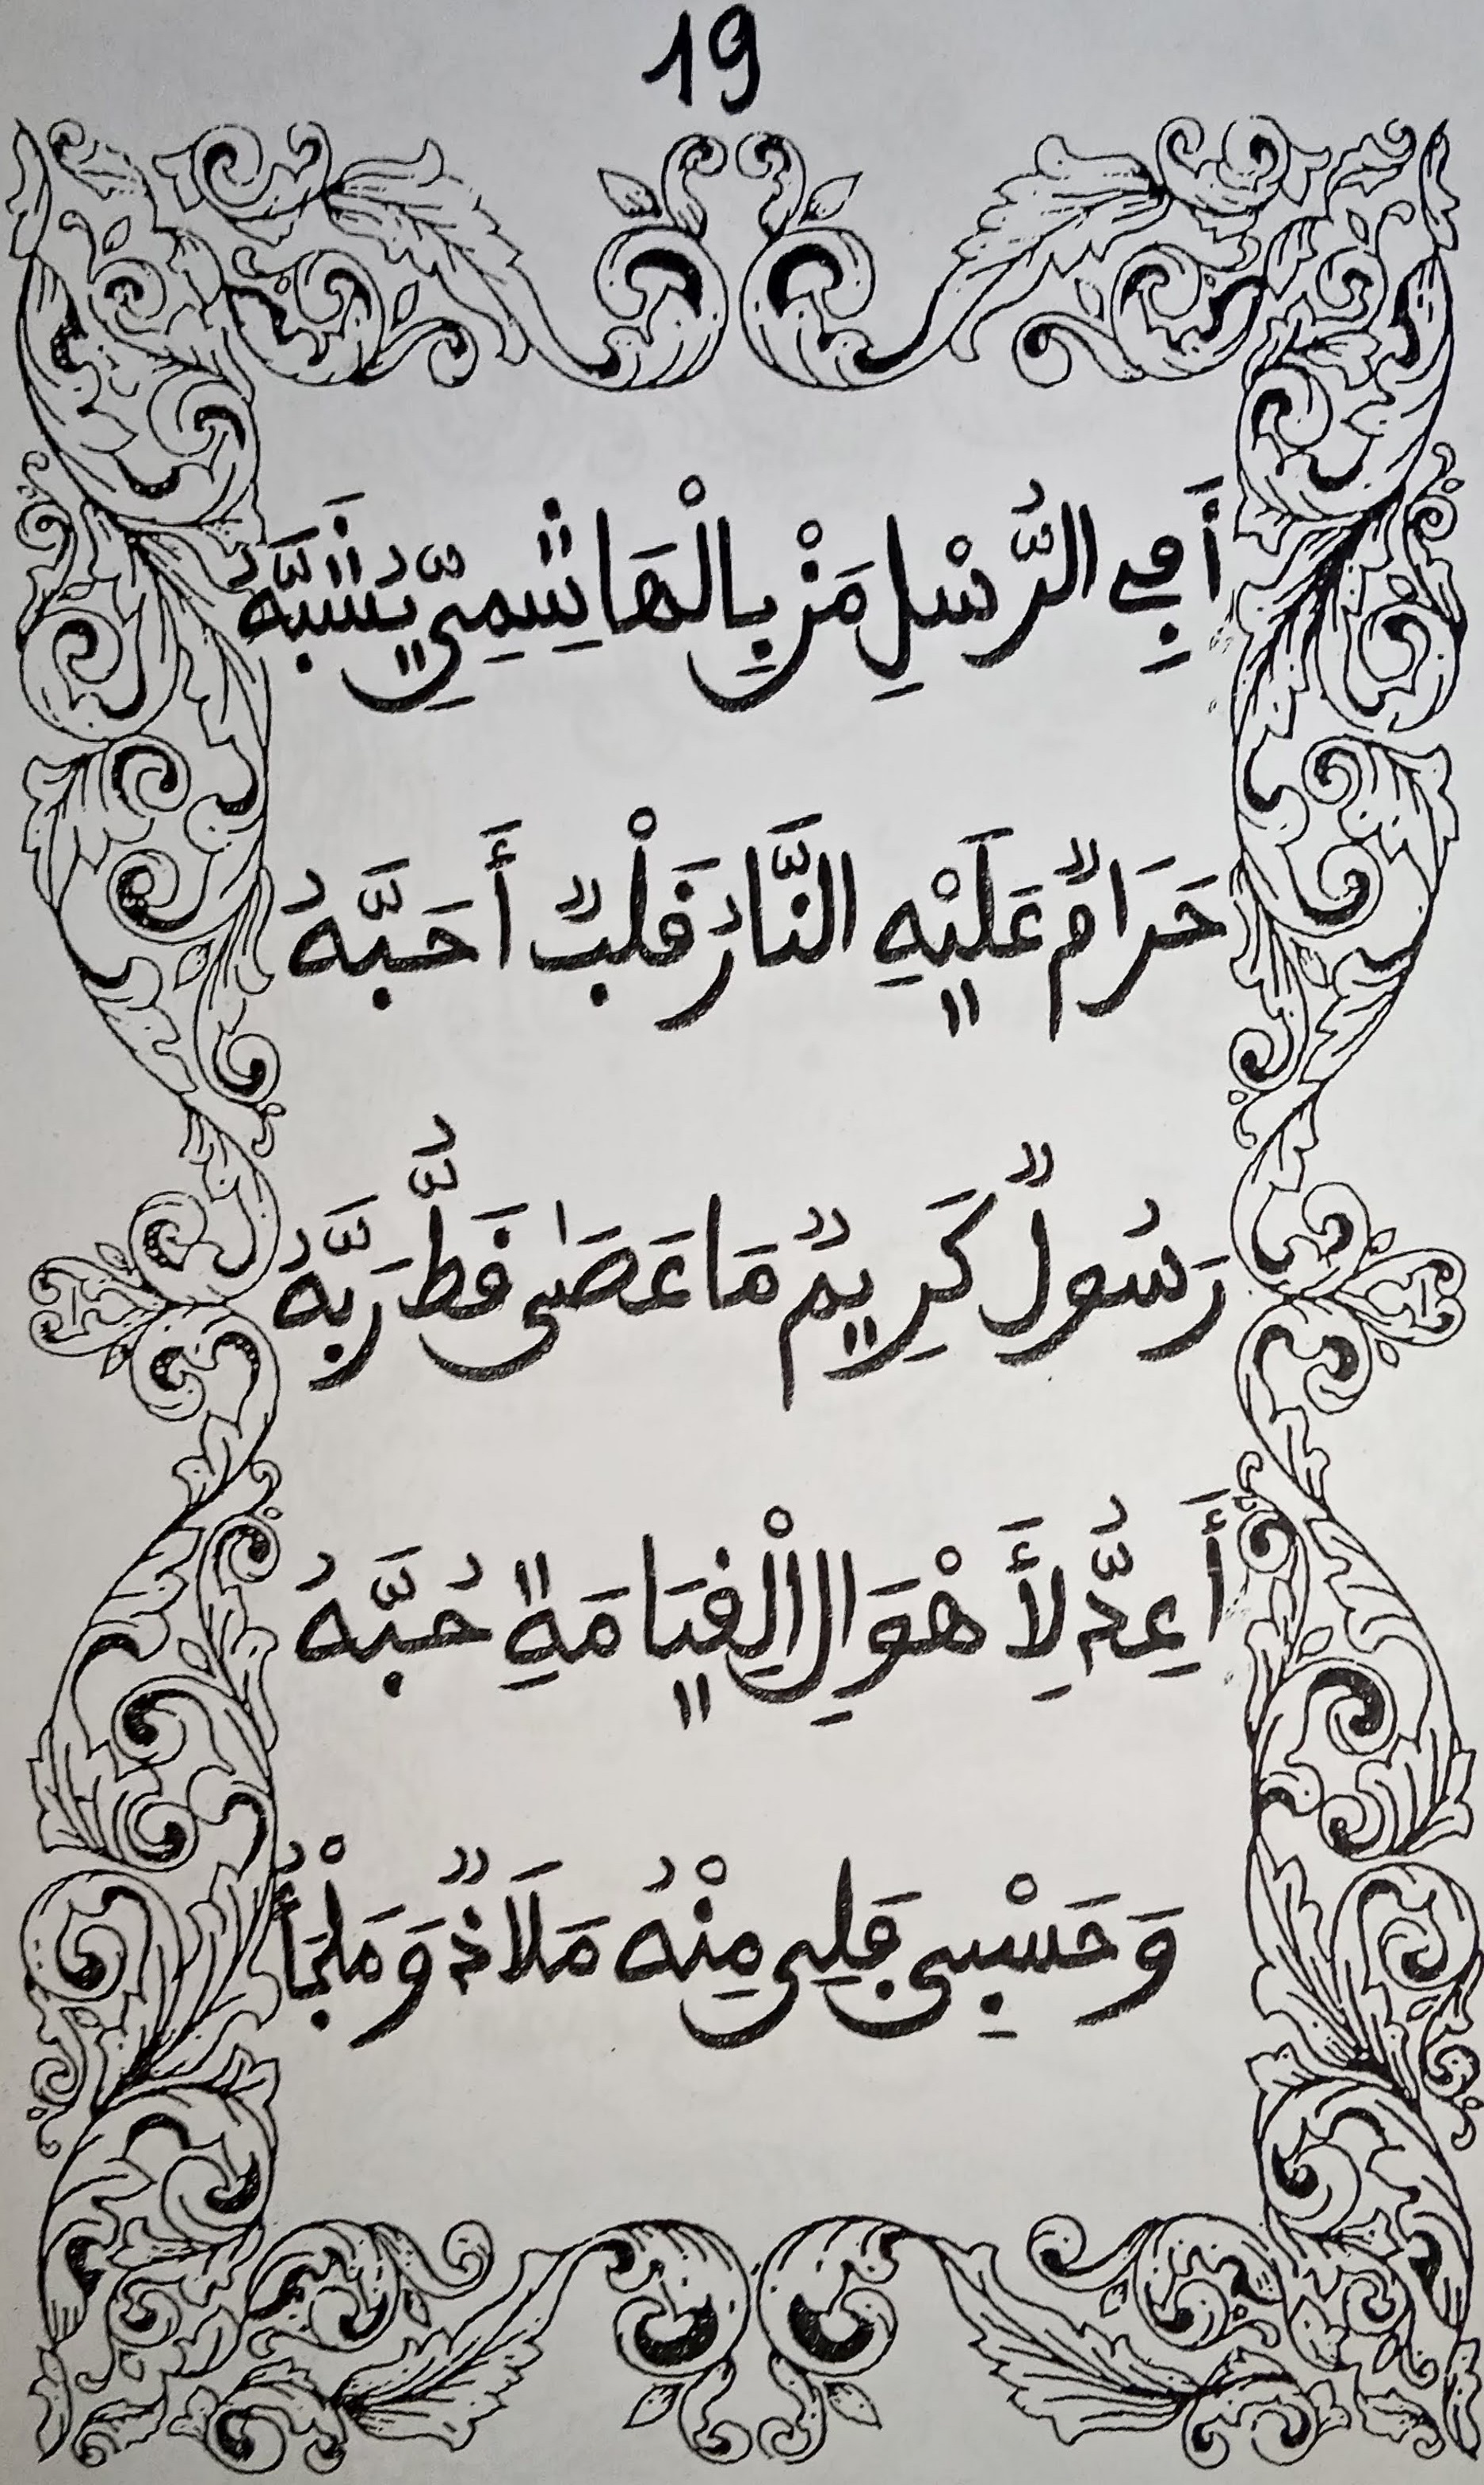 19
أَفِي الرُّسْلِ مَنْ بِالْهَاشِمِيِّ يُشَبَّهُ
حَرَامٌ عَلَيْهِ النَّارُ قَلْبٌ أَحَبَّهُ
رَسُولٌ كَرِيمٌ مَا عَصَىٰ قَطُّ رَبَّهُ
أَعِدُّ لِأَهْوَالِ الْقِيَامَةِ حُبَّهُ
وَحَسْبِى فَلِى مِنْهُ مَلَاذٌ وَمَلْجَأُ